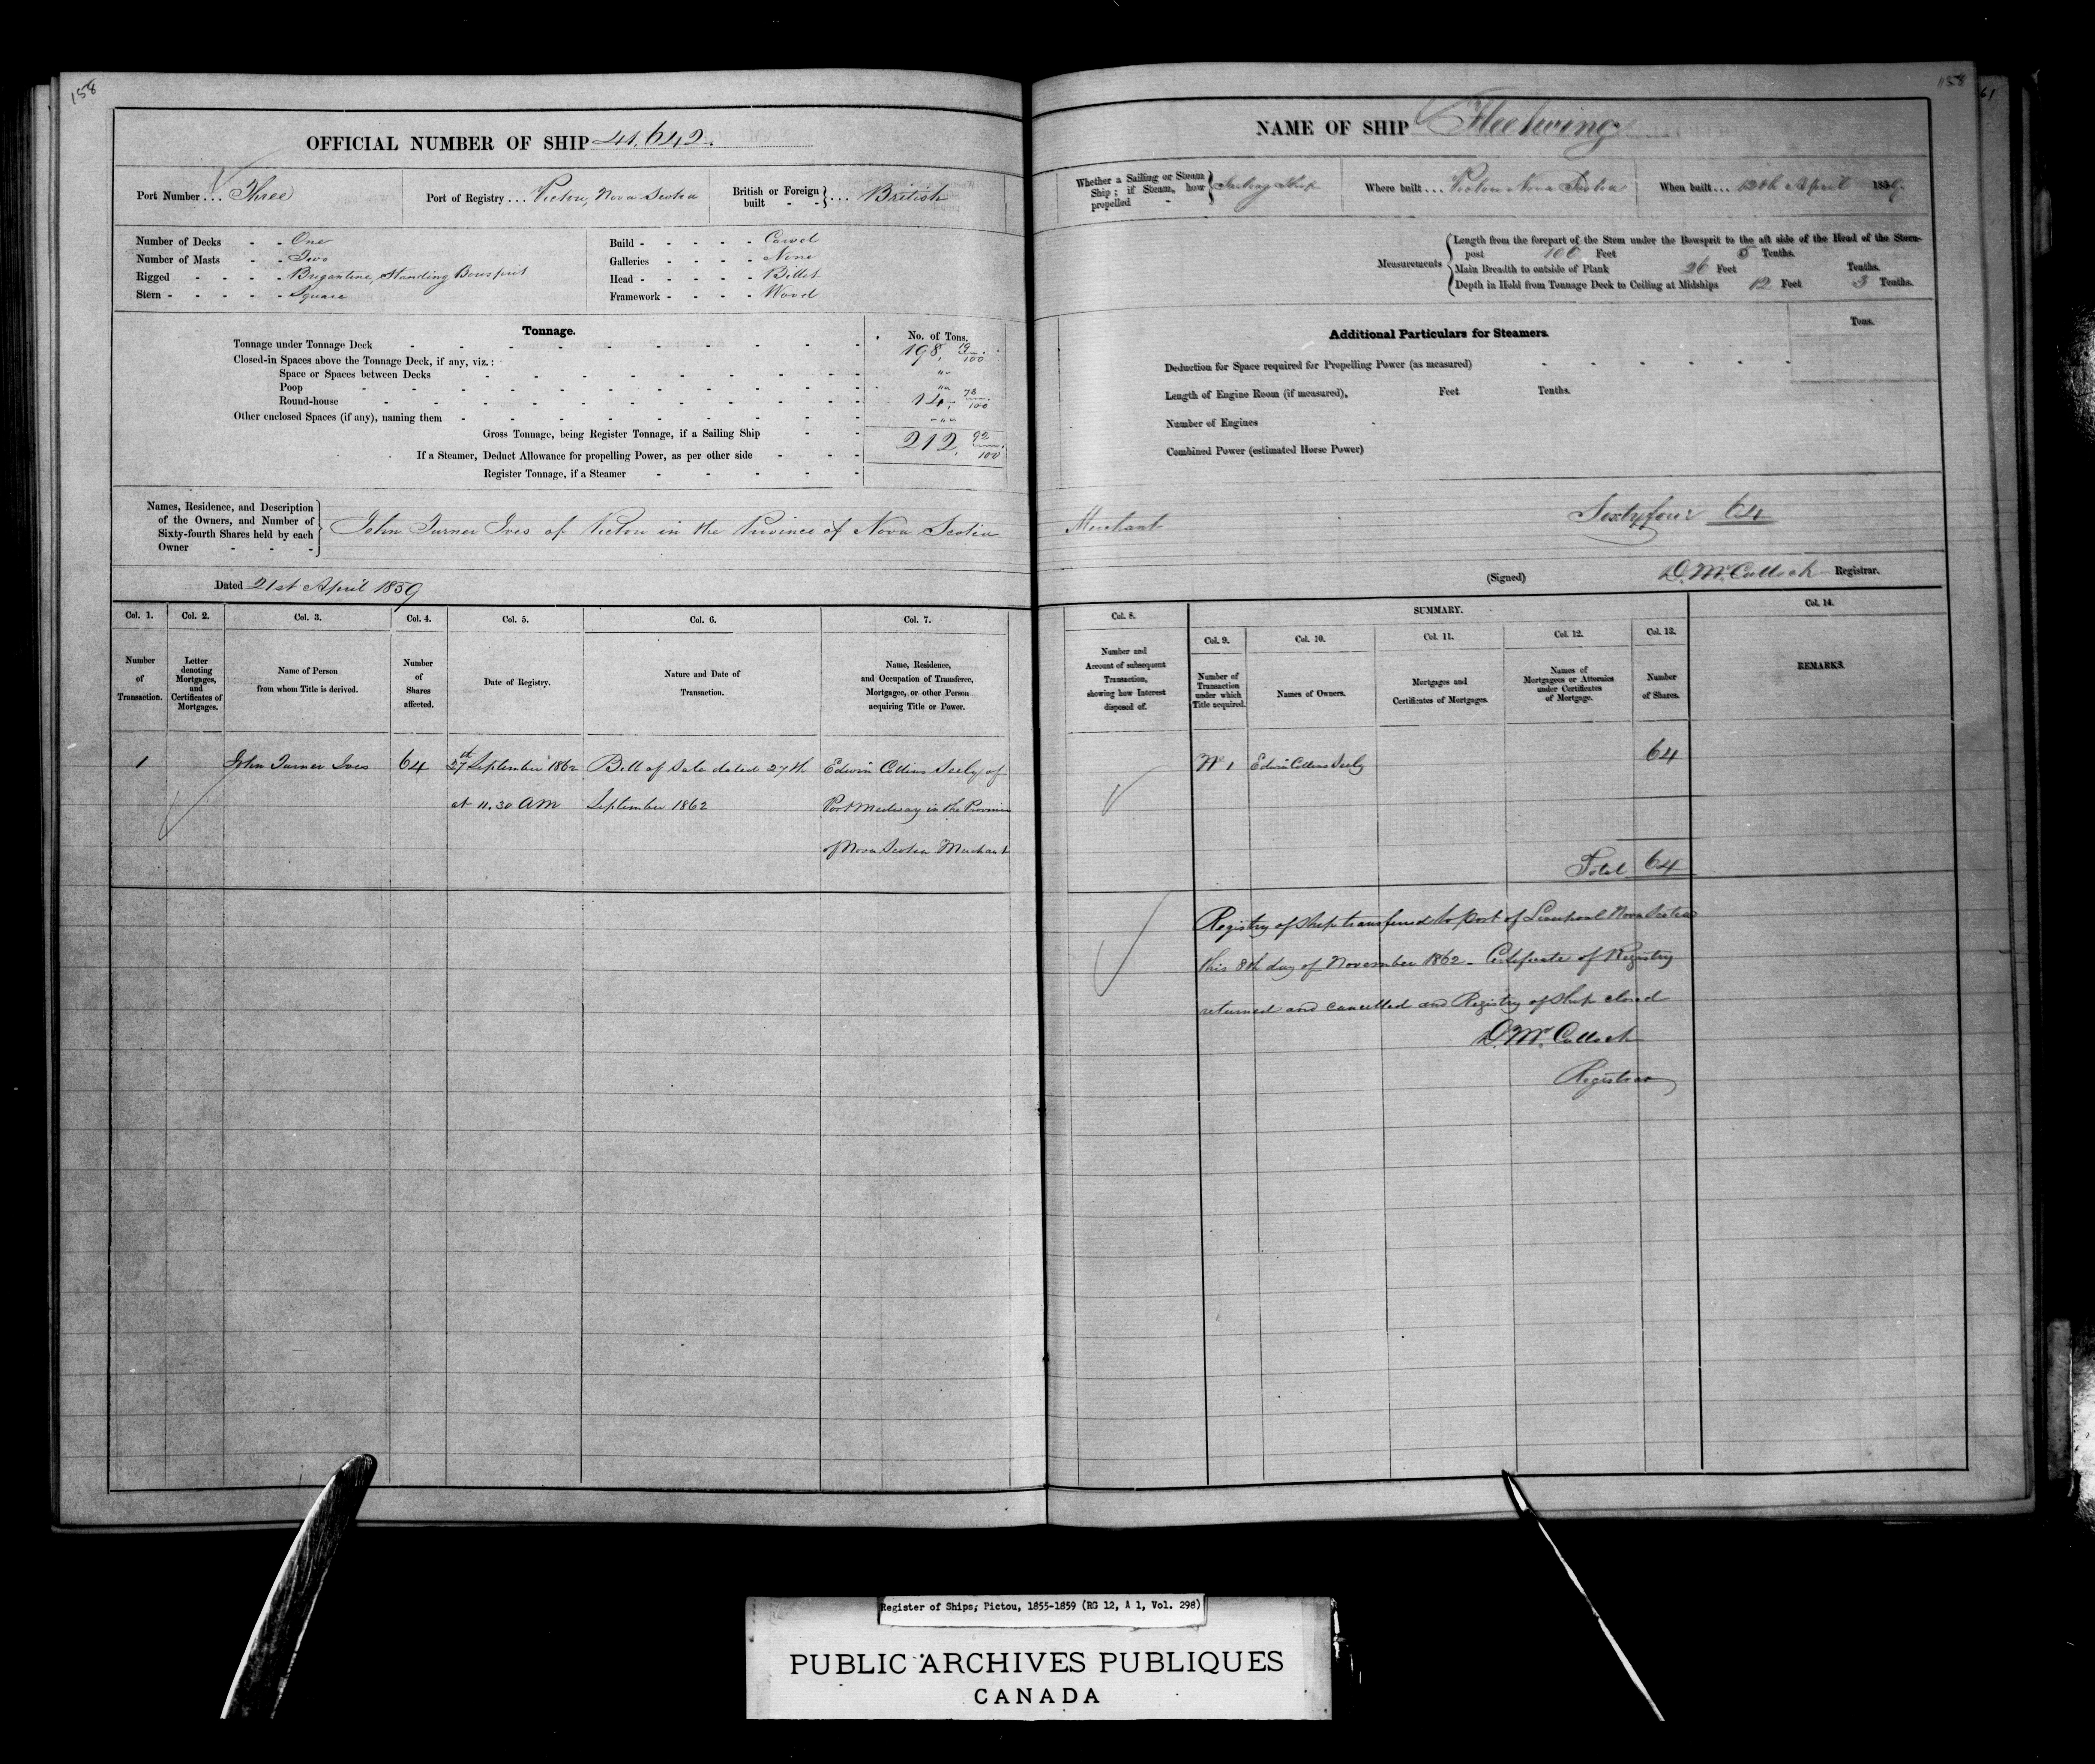 158
OFFICIAL NUMBER OF SHIP 41,642.
Port Number ... Three
Port of Registry ... Pictou, Nova Scotia
British or Foreign built - - } ... British
Number of Decks - - One
Number of Masts - - Two
Rigged - - - - Brigantine, Standing Bowsprit
Stern - - - - - Square
Build - - - - - Carvel
Galleries - - - - None
Head - - - - - Billet
Framework - - - - Wood
Tonnage.
No. of Tons.
Tonnage under Tonnage Deck 198, 19/100
Closed-in Spaces above the Tonnage Deck, if any, viz.:
Space or Spaces between Decks "
Poop "
Round-house 14, 73/100
Other enclosed Spaces (if any), naming them "
Gross Tonnage, being Register Tonnage, if a Sailing Ship 212, 92/100
If a Steamer, Deduct Allowance for propelling Power, as per other side
Register Tonnage, if a Steamer
Names, Residence, and Description
of the Owners, and Number of
Sixty-fourth Shares held by each
Owner - - -
John Turner Ives of Pictou in the Province of Nova Scotia
Dated 21st April 1859
Col. 1. Col. 2. Col. 3. Col. 4. Col. 5. Col. 6. Col. 7.
Number of Transaction.
Letter denoting Mortgages, and Certificates of Mortgages.
Name of Person from whom Title is derived.
Number of Shares affected.
Date of Registry.
Nature and Date of Transaction.
Name, Residence, and Occupation of Transferee, Mortgagee, or other Person acquiring Title or Power.
1 John Turner Ives 64 27th September 1862 Bill of Sale dated 27th Edwin Collins Seely of
at 11.30 AM September 1862 Port Medway in the Province
of Nova Scotia Merchant
158
61
NAME OF SHIP Fleetwing
Whether a Sailing or Steam Ship; if Steam, how propelled - } Sailing Ship
Where built ... Pictou Nova Scotia
When built ... 12th April 1859.
Measurements
Length from the forepart of the Stem under the Bowsprit to the aft side of the Head of the Stern-
post 100 Feet 5 Tenths.
Main Breadth to outside of Plank 26 Feet Tenths.
Depth in Hold from Tonnage Deck to Ceiling at Midships 12 Feet 3 Tenths.
Additional Particulars for Steamers.
Tons.
Deduction for Space required for Propelling Power (as measured)
Length of Engine Room (if measured), Feet Tenths.
Number of Engines
Combined Power (estimated Horse Power)
Merchant Sixty four 64
(Signed) D. McCulloch Registrar.
Col. 8. SUMMARY. Col. 14.
Col. 9. Col. 10. Col. 11. Col. 12. Col. 13.
Number and Account of subsequent Transaction, showing how Interest disposed of.
Number of Transaction under which Title acquired.
Names of Owners.
Mortgages and Certificates of Mortgages.
Names of Mortgagees or Attornies under Certificates of Mortgage.
Number of Shares.
REMARKS.
No 1 Edwin Collins Seely 64
Total 64
Registry of Ship transferred to port of Liverpool Nova Scotia
this 8th day of November 1862 - Certificate of Registry
returned and cancelled and Registry of Ship closed
D. McCulloch
Registrar
Register of Ships; Pictou, 1855-1859 (RG 12, A 1, Vol. 298)
PUBLIC ARCHIVES PUBLIQUES
CANADA